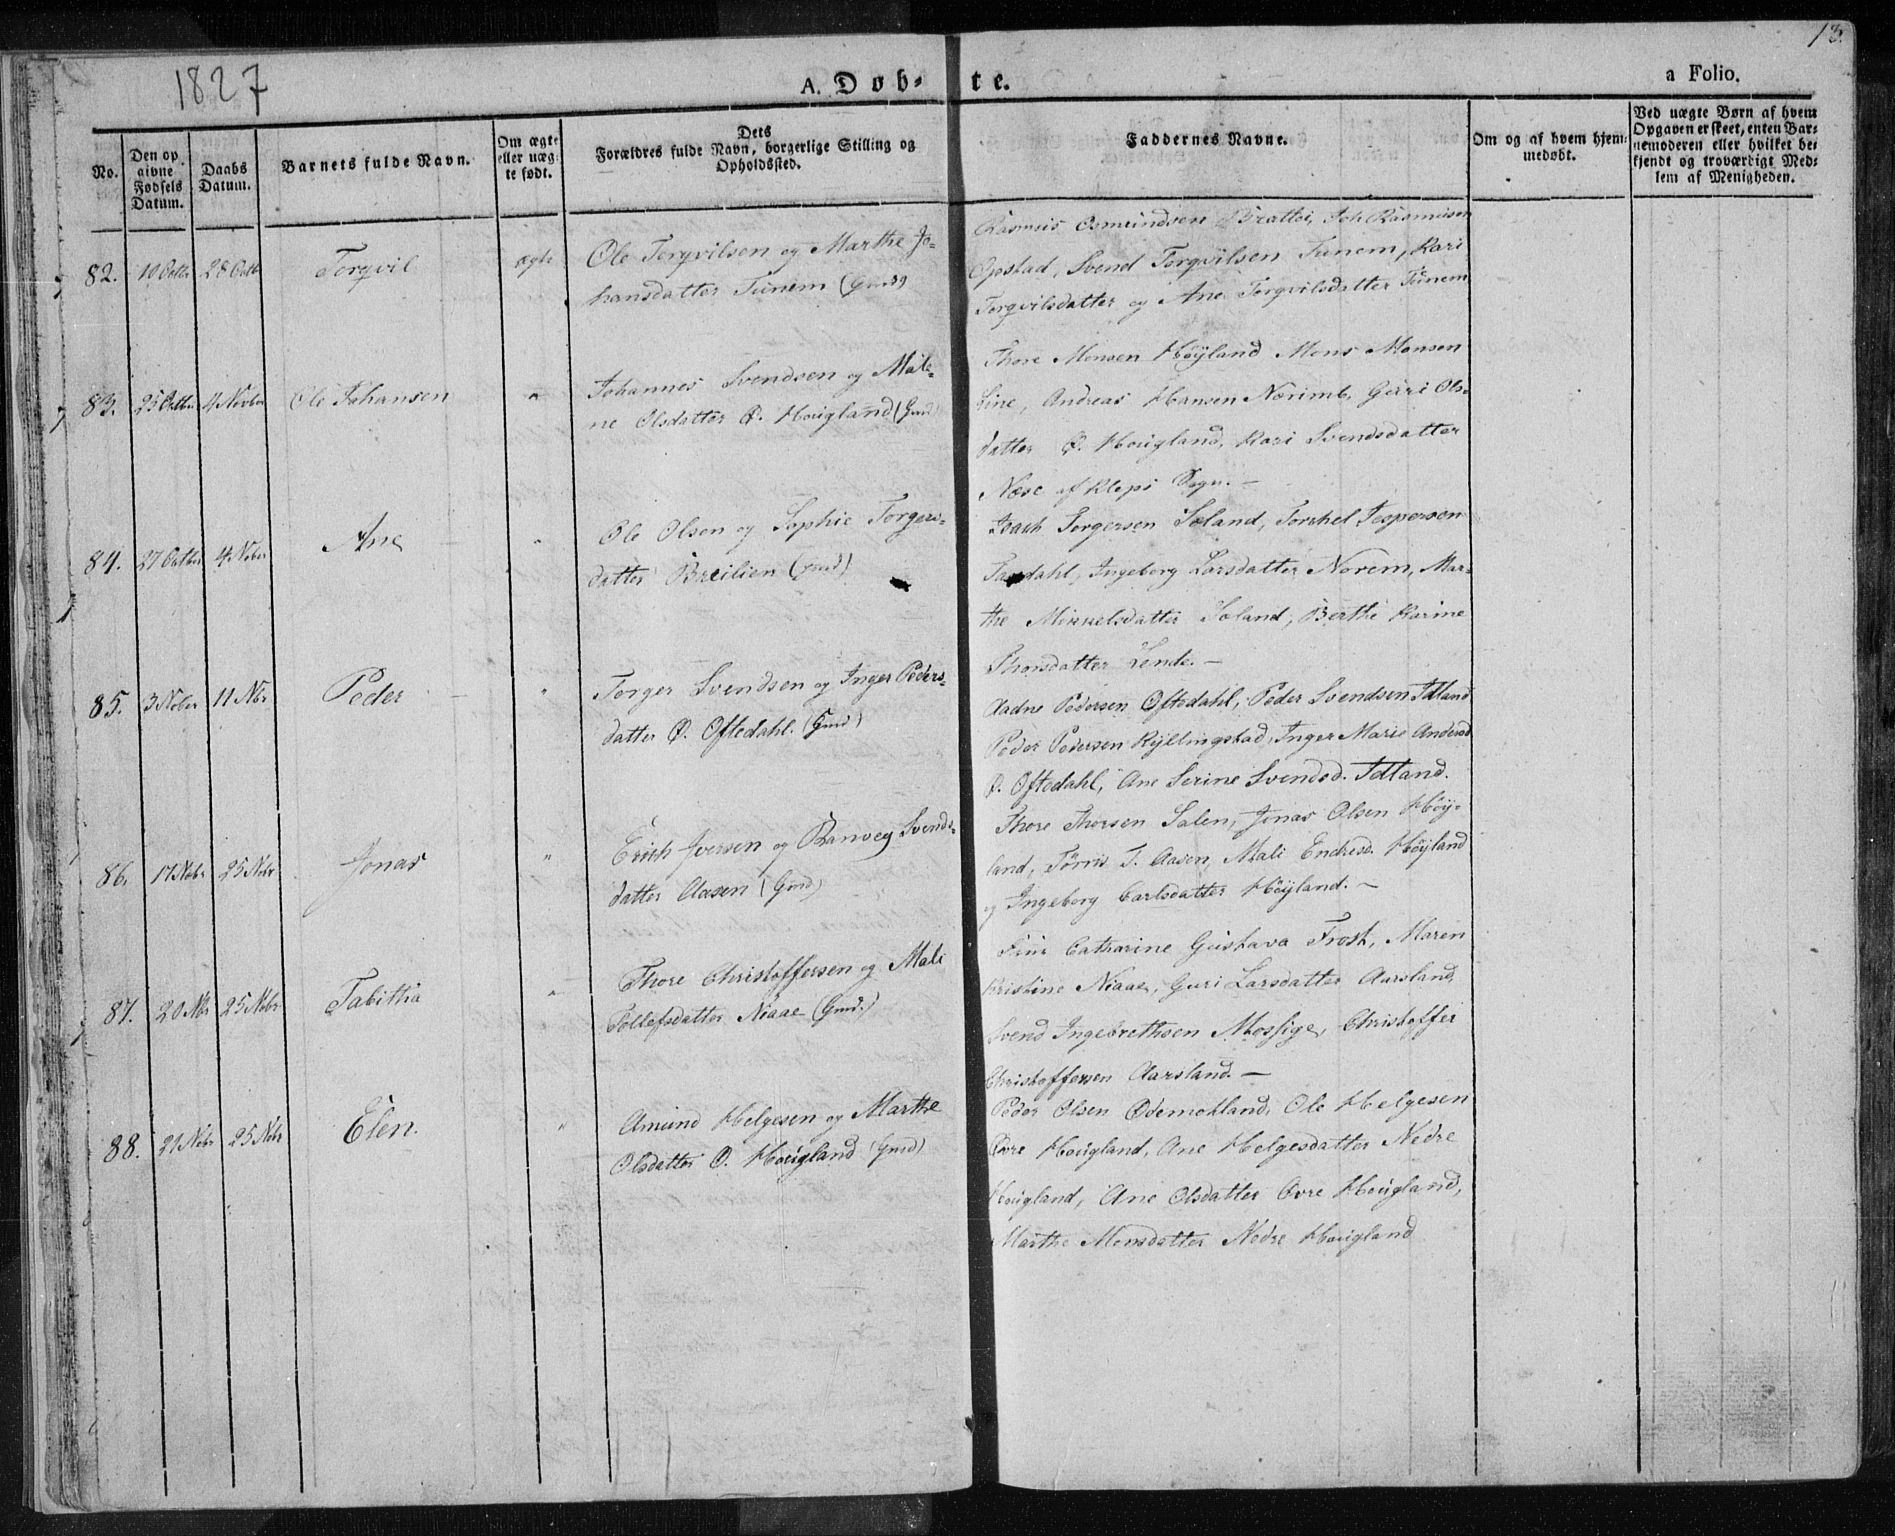 13.
1827
A. Døb-
te.
a Folio.
No.
Den op
givne
Fødsels
Datum.
Daabs
Datum.
Barnets fulde Navn.
Om ægte
eller uæg-
te født.
Dets
Forældres fulde Navn, borgerlige Stilling og
Opholdssted.
Faddernes Navne.
Om og af hvem hjem-
medøbt.
Ved uægte Børn af hvem
Opgaven er skeet, enten Bar-
nemoderen eller hvilket be-
kjendt og troværdigt Med-
lem af Menigheden.
82. 10 Octbr 28 Octb Torqvil ægte
Ole Torqvilsen og Marthe Jo-
hansdatter Tunem (Gmd)
Rasmus Osmundsen Brattei, Joh Rasmusen
Opstad, Svend Torqvilsen Tunem, Kari
Torqvilsdatter og Ane Torqvilsdatter Tunem
83. 25 Octbr 4 Novbr Ole Johansen "
Johannes Svendsen og Male-
ne Olsdatter Ø. Hougland (Gmd)
Thore Monsen Höyland Mons Monsen
Line, Andreas Hansen Nærimb, Guri Ols-
datter Ø. Hougland, Kari Svendsdatter
Næse af Kleps Sogn. —
84. 27 Octbr 4 Nobr Ane "
Ole Olsen og Sophie Torgers-
datter Breilien (Gmd)
Isach Torgersen Soland, Torchel Jespersen
Taxdahl, Ingeborg Larsdatter Norem, Mar-
the Mikkelsdatter Soland, Berthe Karine
Thorsdatter Lende. —
85. 3 Nobr 11 Nbr Peder "
Torger Svendsen og Inger Peders-
datter Ø. Oftedahl. (Gmd)
Aadne Pedersen Oftedahl, Peder Svendsen Idland
Peder Pedersen Kyllingstad, Inger Marie Andersd
Ø. Oftedahl, Ane Serine Svendsd. Idland.
86. 17 Nobr 25 Nobr Jonas "
Erich Iversen og Ranveg Svends-
datter Aasen (Gmd)
Thore Thorsen Salen, Jonas Olsen Höy-
land, Törris T. Aasen, Mali Endresd. Höyland
og Ingeborg Carlsdatter Höyland. —
87. 20 Nbr 25 Nobr Tabitha "
Thore Christoffersen og Mali
Tollefsdatter Niaae (Gmd.)
Catharine Gustava Frost, Maren
Kristine Niaae, Guri Larsdatter Aarsland,
Svend Ingebrethsen Mossige, Christoffer
Christoffersen Aarsland. —
88. 21 Nobr 25 Nobr Elen. "
Amund Helgesen og Marthe
Olsdatter Ø. Hougland (Gmd)
Peder Olsen Ødemotland, Ole Helgesen
Øvre Hougland, Ane Helgesdatter Nedre
Hougland, Ane Olsdatter Øvre Hougland,
Marthe Monsdatter Nedre Hougland